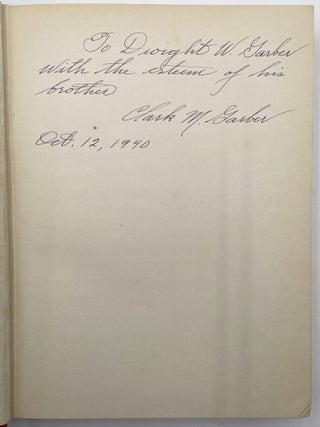 To Dwight W. Garber
with the esteem of his
brother
Clark M. Garber
Oct. 12, 1940